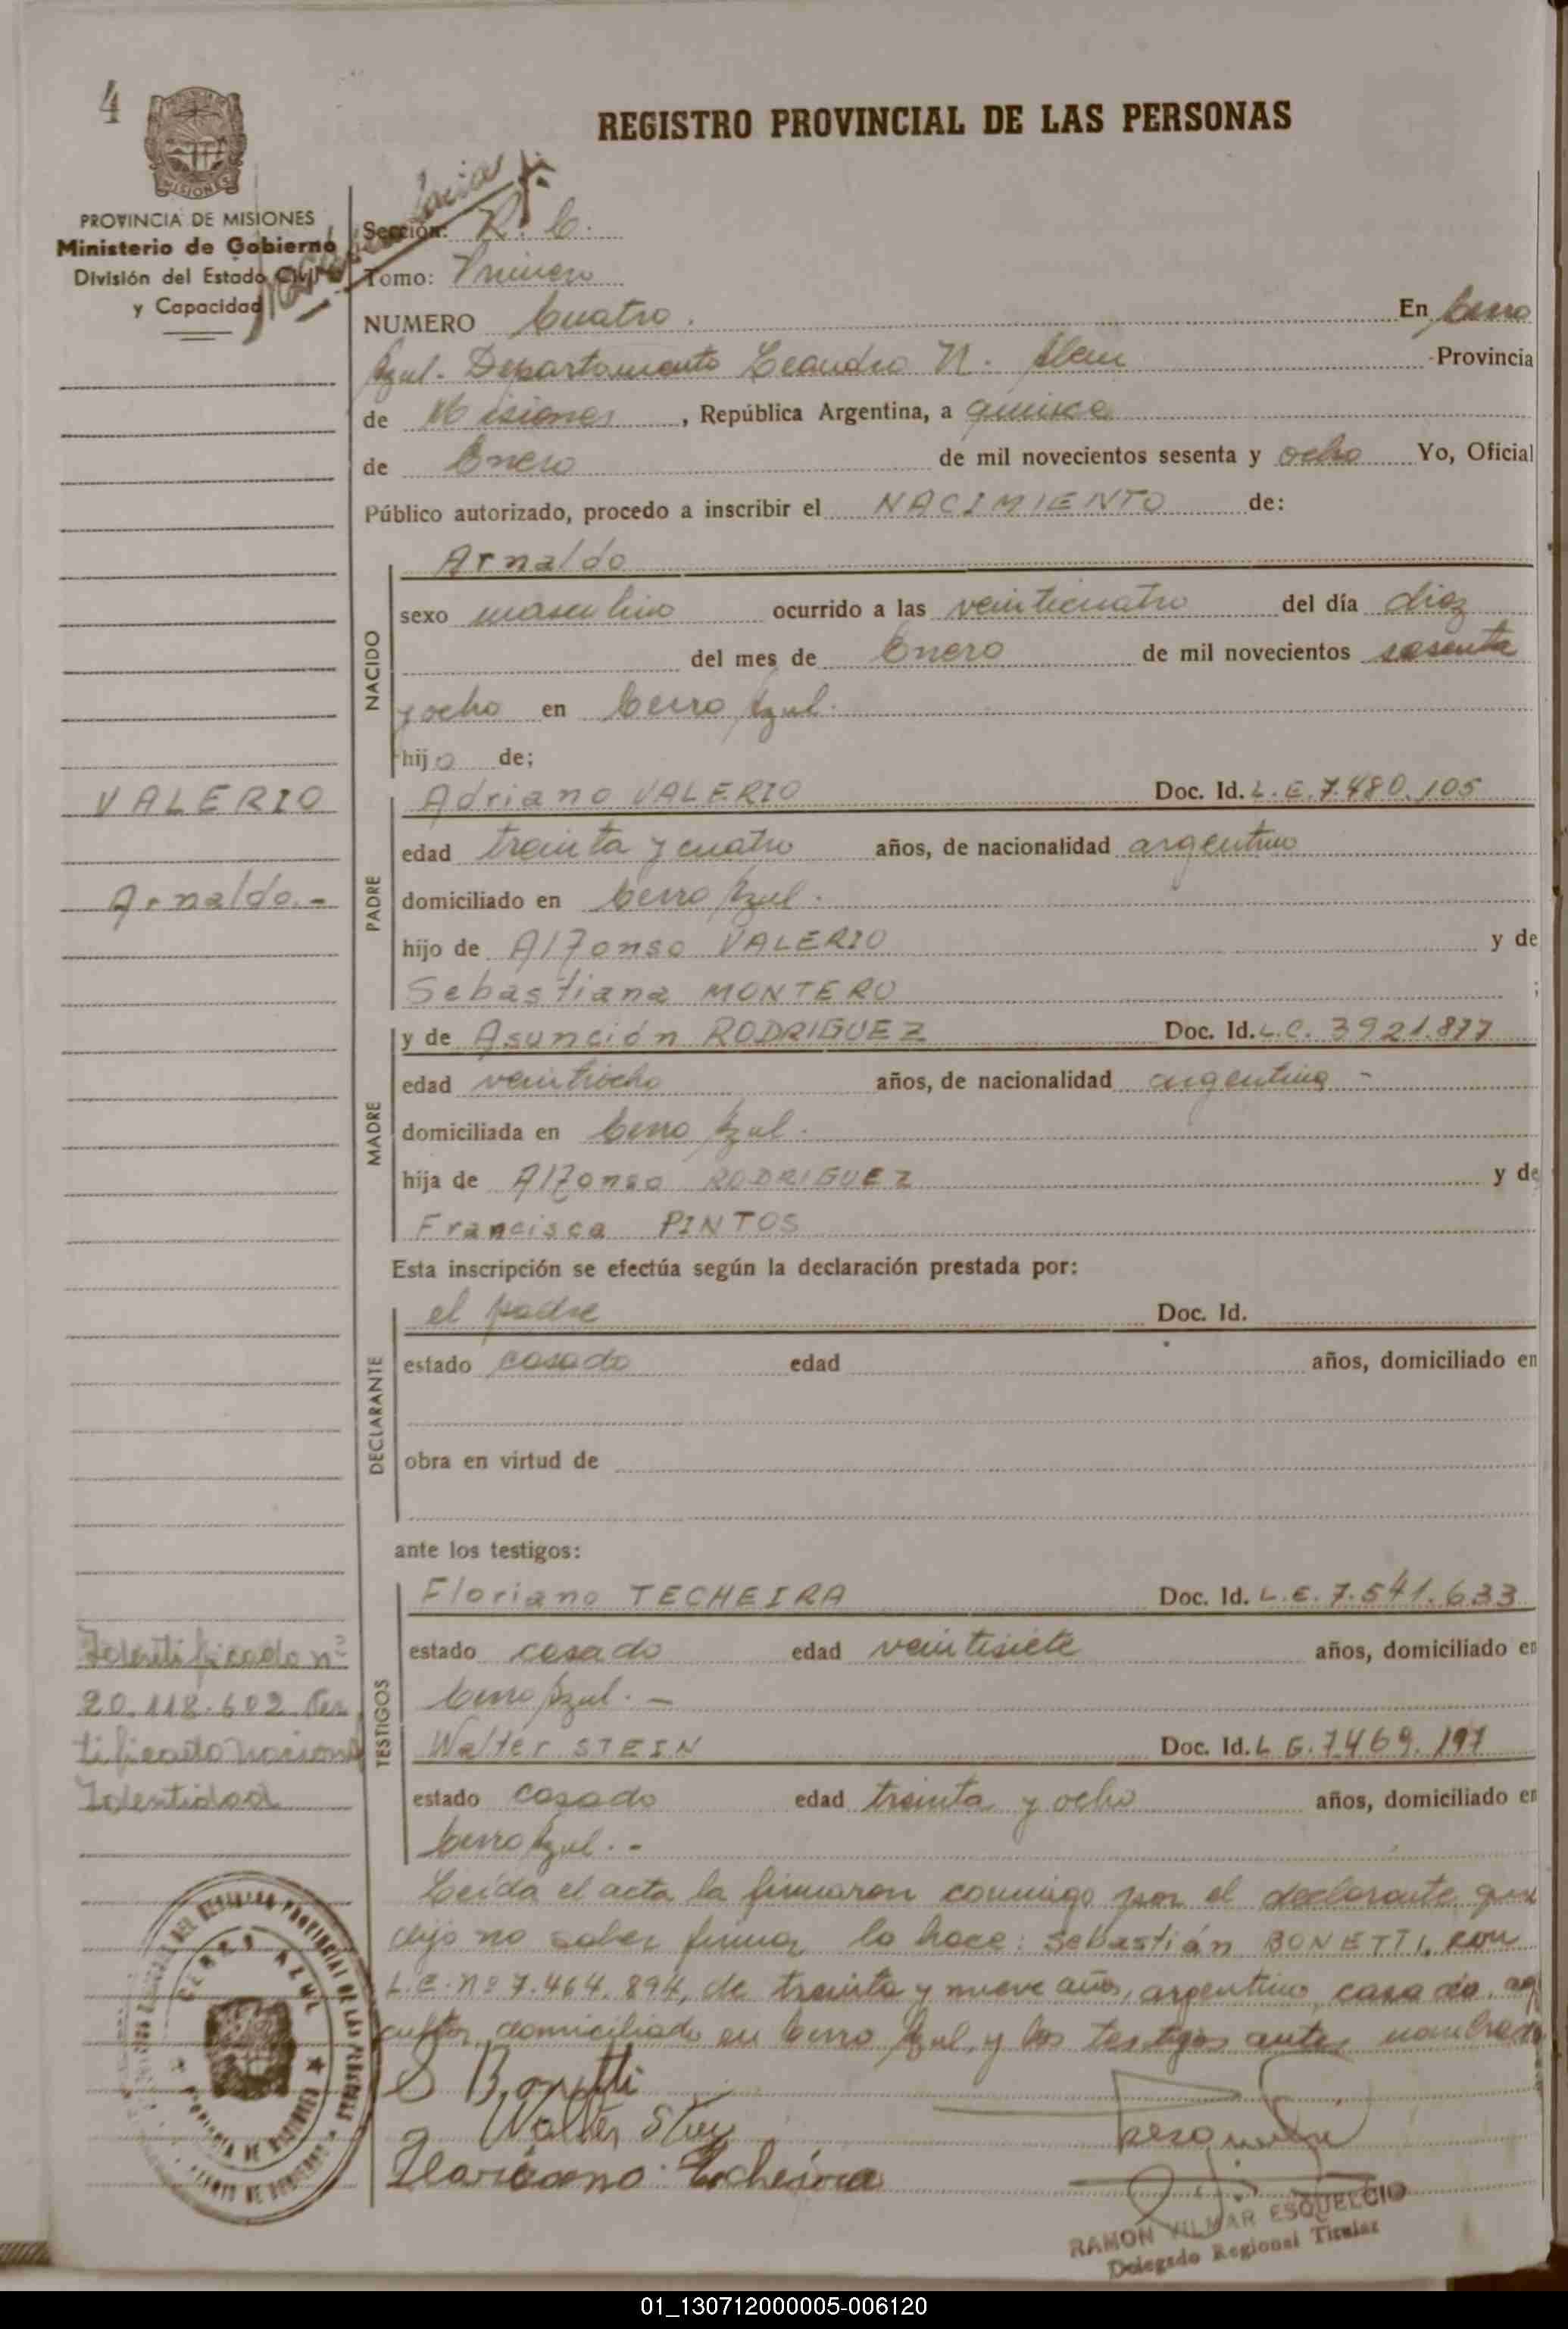 4
REGISTRO PROVINCIAL DE LAS PERSONAS
MISIONES
PROVINCIA DE MISIONES
Ministerio de Gobierno
División del Estado Civil
y Capacidad
Sección: R. C.
Tomo: Primero
NUMERO Cuatro. En Cerro
Azul. Departamento Leandro N. Alem - Provincia
de Misiones, República Argentina, a quince
de Enero de mil novecientos sesenta y ocho Yo, Oficial
Público autorizado, procedo a inscribir el NACIMIENTO de:
NACIDO
Arnaldo
sexo masculino ocurrido a las veinticuatro del día diez
del mes de Enero de mil novecientos sesenta
y ocho en Cerro Azul.
hijo de;
VALERIO
Arnaldo.-
PADRE
Adriano VALERIO Doc. Id. L.E. 7.480.105
edad treinta y cuatro años, de nacionalidad argentino
domiciliado en Cerro Azul.
hijo de Alfonso VALERIO y de
Sebastiana MONTERO ;
MADRE
y de Asunción RODRIGUEZ Doc. Id. L.C. 3921.877
edad veintiocho años, de nacionalidad argentina -
domiciliada en Cerro Azul.
hija de Alfonso RODRIGUEZ y de
Francisca PINTOS
Esta inscripción se efectúa según la declaración prestada por:
DECLARANTE
el padre Doc. Id.
estado casado edad años, domiciliado en
obra en virtud de
ante los testigos:
TESTIGOS
Floriano TECHEIRA Doc. Id. L.E. 7.541.633
estado casado edad veintisiete años, domiciliado en
Cerro Azul. -
Walter STEIN Doc. Id. L E. 7.469.197
estado casado edad treinta y ocho años, domiciliado en
Cerro Azul. -
Identificado nº
20.118.602 Cer
tificado Nacional
Identidad
Leída el acta la firmaron conmigo por el declarante que
dijo no saber firmar lo hace: Sebastián BONETTI, con
L.E. nº 7.464.894, de treinta y nueve años, argentino, casado, agri
cultor, domiciliado en Cerro Azul, y los testigos antes nombrados
S Bonetti
Walter Stein
Floriano Techeira
CERRO AZUL
RAMON VILMAR ESQUELCIO
Delegado Regional Titular
01_130712000005-006120